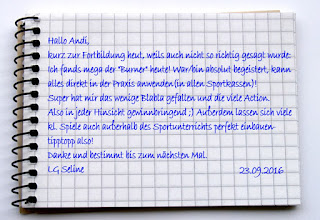 Hallo Andi,
kurz zur Fortbildung heut, weils auch nicht so richtig gesagt wurde:
Ich fands mega der "Burner" heute! War/bin absolut begeistert, kann
alles direkt in der Praxis anwenden(in allen Sportkassen)!
Super hat mir das wenige Blabla gefallen und die viel Action.
Also in jeder Hinsicht gewinnbringend ;) Außerdem lassen sich viele
kl. Spiele auch außerhalb des Sportunterrichts perfekt einbauen-
tipptopp also!
Danke und bestimmt bis zum nächsten Mal.
LG Seline 23.09.2016